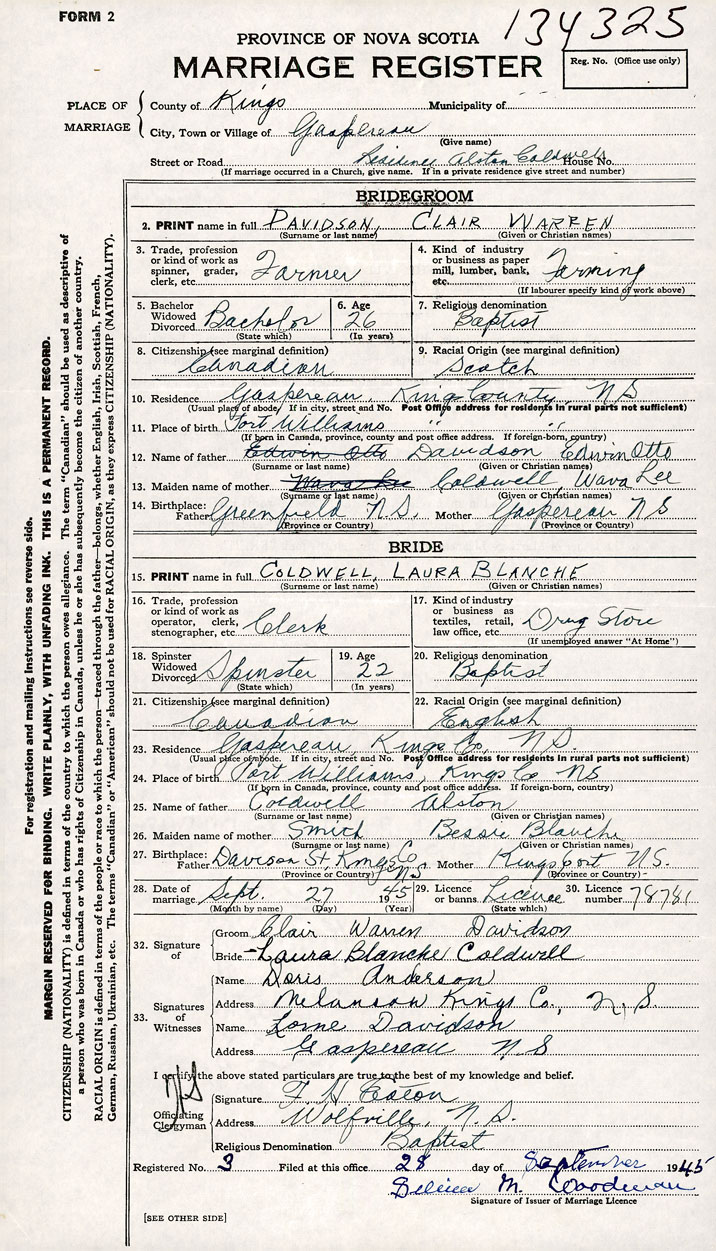 FORM 2
134325
PROVINCE OF NOVA SCOTIA
MARRIAGE REGISTER
Reg. No. (Office use only)
PLACE OF MARRIAGE
County of Kings Municipality of
City, Town or Village of Gaspereau
(Give name)
Street or Road Residence Alston Coldwell House No.
(If marriage occurred in a Church, give name. If in a private residence give street and number)
BRIDEGROOM
2. PRINT name in full DAVIDSON, CLAIR WARREN
(Surname or last name) (Given or Christian names)
3. Trade, profession or kind of work as spinner, grader, clerk, etc. Farmer
4. Kind of industry or business as paper mill, lumber, bank, etc. Farming
(If labourer specify kind of work above)
5. Bachelor Widowed Divorced Bachelor
(State which)
6. Age 26
(In years)
7. Religious denomination
Baptist
8. Citizenship (see marginal definition)
Canadian
9. Racial Origin (see marginal definition)
Scotch
10. Residence Gaspereau, King County, NS
(Usual place of abode) If in city, street and No. Post Office address for residents in rural parts not sufficient)
11. Place of birth Port Williams " "
(If born in Canada, province, county and post office address. If foreign-born, country)
12. Name of father Edwin Otto Davidson Edwin Otto
(Surname or last name) (Given or Christian names)
13. Maiden name of mother Wava Lee Coldwell, Wava Lee
(Surname or last name) (Given or Christian names)
14. Birthplace: Father Greenfield N.S. Mother Gaspereau NS
(Province or Country) (Province or Country)
BRIDE
15. PRINT name in full COLDWELL, LAURA BLANCHE
(Surname or last name) (Given or Christian names)
16. Trade, profession or kind of work as operator, clerk, stenographer, etc. Clerk
17. Kind of industry or business as textiles, retail, law office, etc. Drug Store
(If unemployed answer "At Home")
18. Spinster Widowed Divorced Spinster
(State which)
19. Age 22
(In years)
20. Religious denomination
Baptist
21. Citizenship (see marginal definition)
Canadian
22. Racial Origin (see marginal definition)
English
23. Residence Gaspereau, Kings Co. N.S.
(Usual place of abode. If in city, street and No. Post Office address for residents in rural parts not sufficient)
24. Place of birth Port Williams, Kings Co NS
(If born in Canada, province, county and post office address. If foreign-born, country)
25. Name of father Coldwell Alston
(Surname or last name) (Given or Christian names)
26. Maiden name of mother Smith Bessie Blanche
(Surname or last name) (Given or Christian names)
27. Birthplace: Father Davison St, Kings Co NS Mother Kingsport N.S.
(Province or Country) (Province or Country)
28. Date of marriage Sept. 27 1945
(Month by name) (Day) (Year)
29. Licence or banns Licence
(State which)
30. Licence number 78781
32. Signature of
Groom Clair Warren Davidson
Bride Laura Blanche Coldwell
33. Signatures of Witnesses
Name Doris Anderson
Address Melanson Kings Co., N.S.
Name Lorne Davidson
Address Gaspereau N.S
I certify the above stated particulars are true to the best of my knowledge and belief.
Officiating Clergyman
Signature F H Eaton
Address Wolfville, N.S.
Religious Denomination Baptist
Registered No. 3 Filed at this office 28 day of September 1945
M. Woodman
Signature of Issuer of Marriage Licence
[SEE OTHER SIDE]
For registration and mailing instructions see reverse side.
MARGIN RESERVED FOR BINDING. WRITE PLAINLY, WITH UNFADING INK. THIS IS A PERMANENT RECORD.
CITIZENSHIP (NATIONALITY) is defined in terms of the country to which the person owes allegiance. The term "Canadian" should be used as descriptive of
a person who was born in Canada or who has rights of Citizenship in Canada, unless he or she has subsequently become the citizen of another country.
RACIAL ORIGIN is defined in terms of the people or race to which the person—traced through the father—belongs, whether English, Irish, Scottish, French,
German, Russian, Ukrainian, etc. The terms "Canadian" or "American" should not be used for RACIAL ORIGIN, as they express CITIZENSHIP (NATIONALITY).